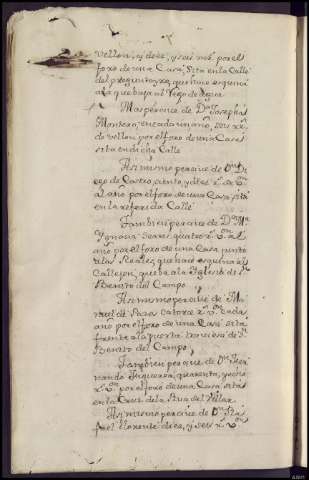 vellon, y diez, y seis mrs. por el
foro de una Casa, sita en la Calle
del que hace esquina
ala que baja al
Mas percive de Da. Josepha
Montero, en cada un año, seis rrs.
de vellon por el foro de una Casa
sita en dicha Calle
Asimismo percive de Dn. Die
go de Castro, ciento y diez rs. de vn.
al año por el foro de una Casa sita
en la referida Calle
Tambien percive de Da. Ma.
Ygnacia Seares quatro rs. vn. al
año por el foro de una Casa junto
a los Reales, que hace esquina al
Callejon, que ba ala Yglesia de Sn.
Benito del Campo
Asimismo percive de Ma
nuel de Paza catorce rs. vn. cada
año por el foro de una Casa sita
frente ala puerta traviesa de Sn.
Benito del Campo
Tambien percive de Dn. Fer
nando Figueroa, quarenta, y ocho
rs. vn. por el foro de una Casa, sita
en la Cruz de la Rua del Villar
Asimismo percive de Dn. Ra
fael Llorente diez, y seis rs. vn.